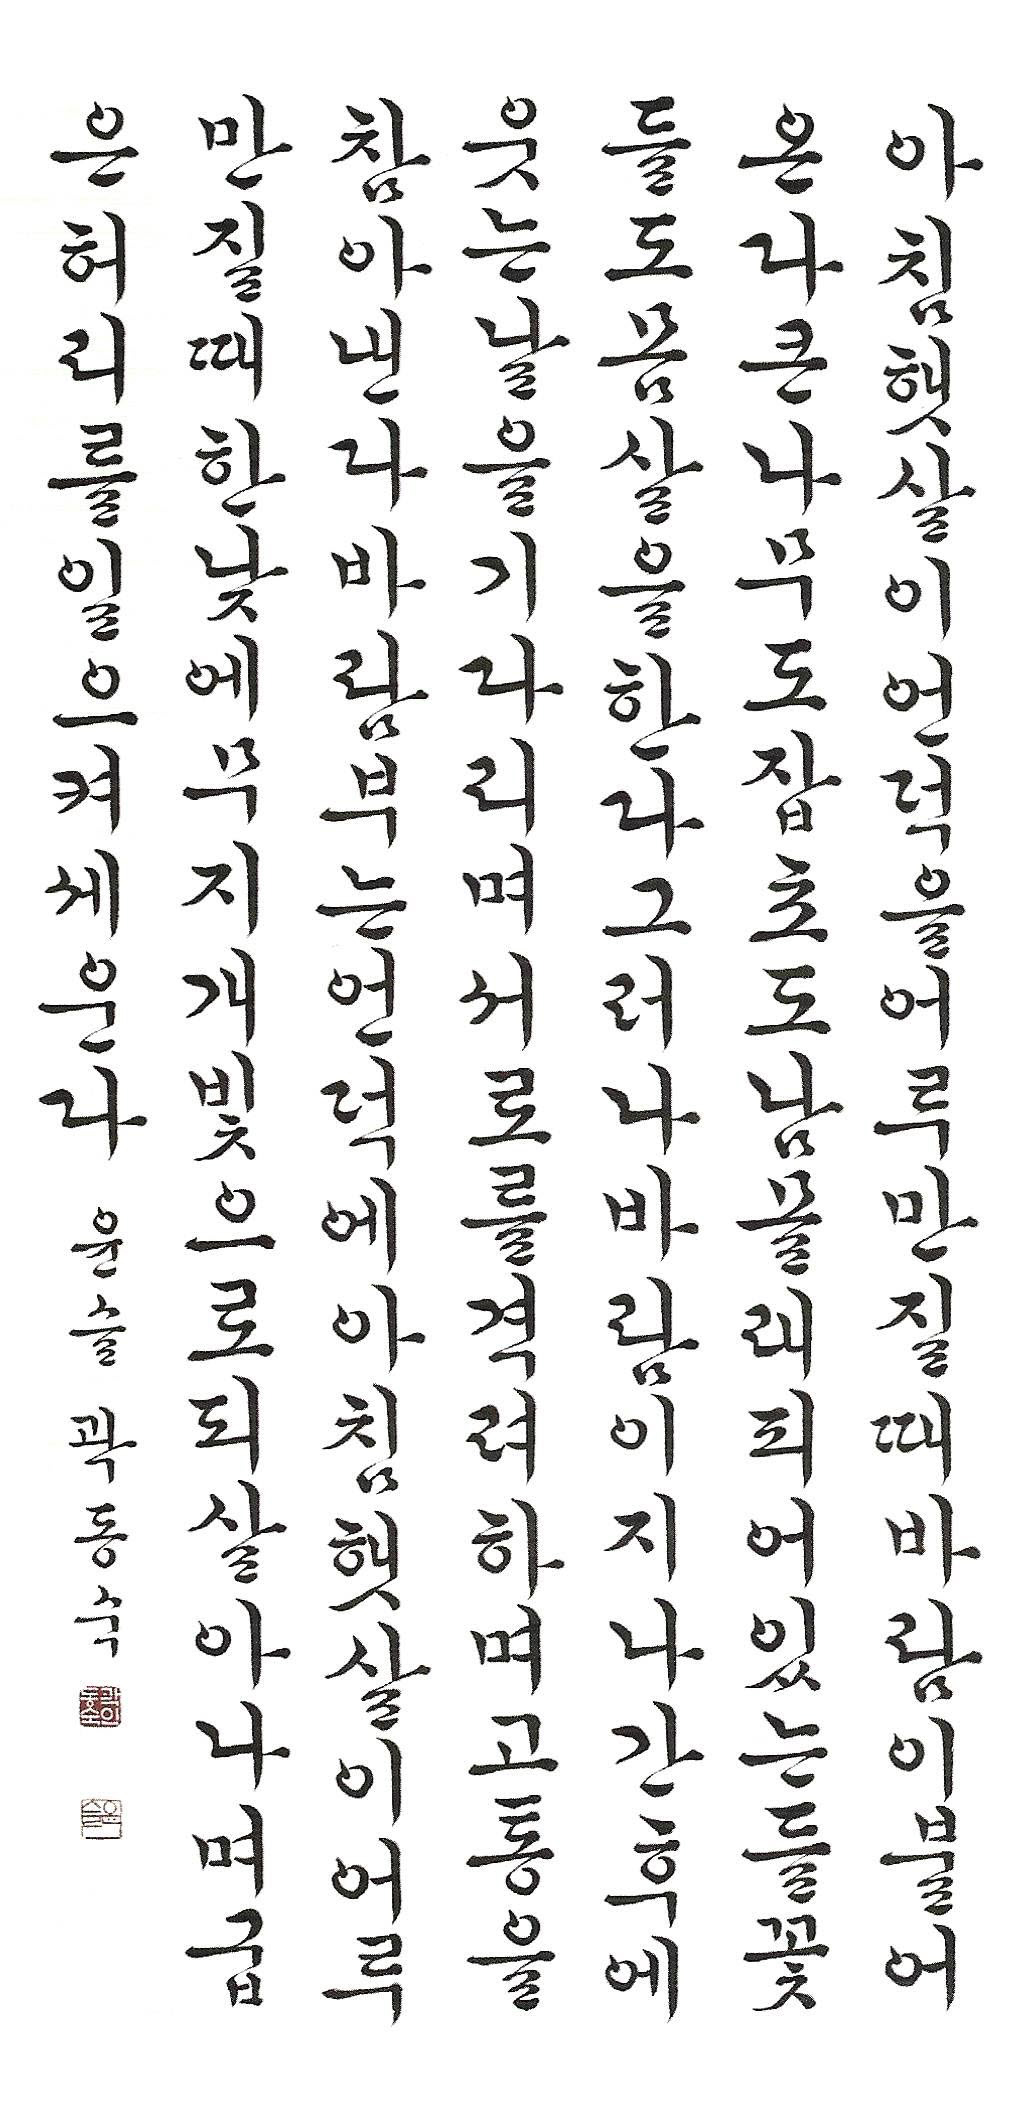 아침햇살이언덕을어루만질때바람이불어
온다큰나무도잡초도남몰래피어있는들꽃
들도몸살을한다그러나바람이지나간후에
웃는날을기다리며서로를격려하며고통을
참아낸다바람부는언덕에아침햇살이어루
만질때한낮에무지개빛으로되살아나며굽
은허리를일으켜세운다 윤슬 곽동숙